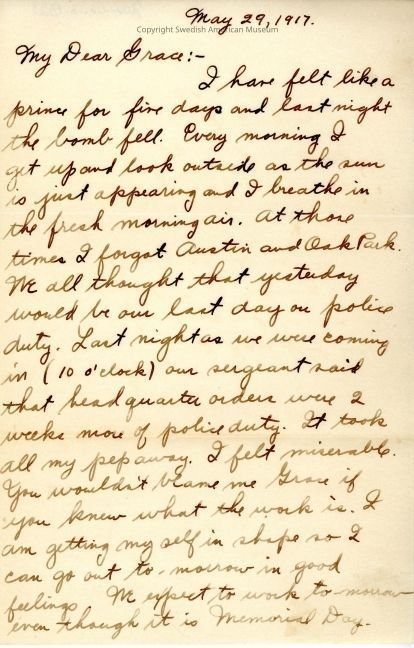 May 29, 1917.
Copyright Swedish American Museum
My Dear Grace:-
I have felt like a
prince for five days and last night
the bomb fell. Every morning I
get up and look outside as the sun
is just appearing and I breathe in
the fresh morning air. At those
times I forgot Austin and Oak Park.
We all thought that yesterday
would be our last day on police
duty. Last night as we were coming
in (10 o'clock) our sergeant said
that headquarters orders were 2
weeks more of police duty. It took
all my pep away. I felt miserable.
You wouldn't blame me Grace if
you knew what the work is. I
am getting myself in shape so I
can go out to-morrow in good
feelings We expect to work to-morrow
even though it is Memorial Day.